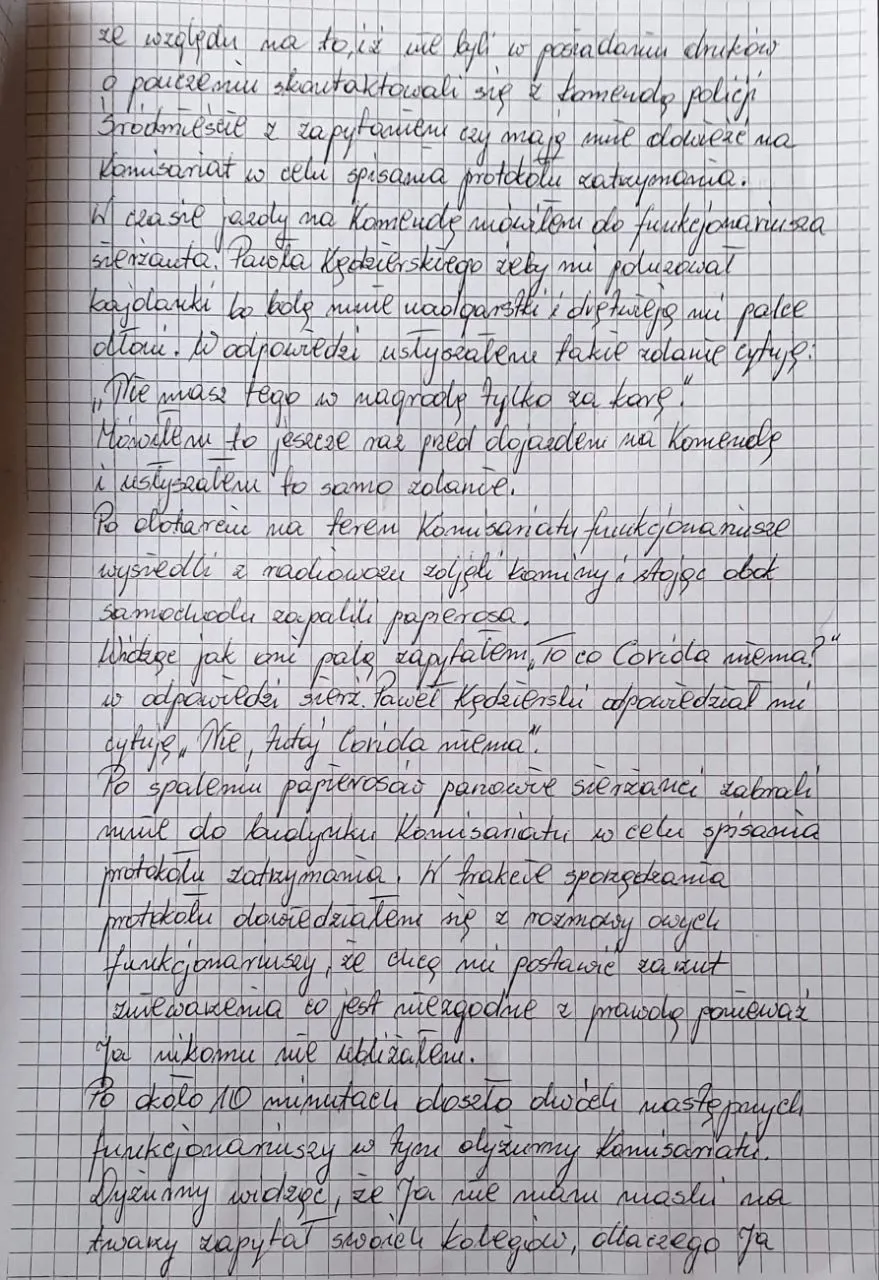 ze względu na to, iż nie byli w posiadaniu druków
o pouczeniu skontaktowali się z komendą policji
Śródmieście z zapytaniem czy mają mnie dowieźć na
Komisariat w celu spisania protokołu zatrzymania.
W czasie jazdy na Komendę mówiłem do funkcjonariusza
sierżanta. Pawła Kędzierskiego żeby mi poluzował
kajdanki bo bolą mnie nadgarstki i drętwieją mi palce
dłoni. W odpowiedzi usłyszałem takie zdanie cytuję:
„Nie masz tego w nagrodę tylko za karę."
Mówiłem to jeszcze raz przed dojazdem na Komendę
i usłyszałem to samo zdanie.
Po dotarciu na teren Komisariatu funkcjonariusze
wysiedli z radiowozu zdjęli kominy i stojąc obok
samochodu zapalili papierosa.
Widząc jak oni palą zapytałem „To co Covida niema?"
w odpowiedzi sierż. Paweł Kędzierski odpowiedział mi
cytuję „Nie, tutaj Covida niema".
Po spaleniu papierosów panowie sierżanci zabrali
mnie do budynku Komisariatu w celu spisania
protokołu zatrzymania. W trakcie sporządzania
protokołu dowiedziałem się z rozmowy owych
funkcjonariuszy, że chcą mi postawić zarzut
znieważenia co jest niezgodne z prawdą ponieważ
Ja nikomu nie ubliżałem.
Po około 10 minutach doszło dwóch następnych
funkcjonariuszy w tym dyżurny Komisariatu.
Dyżurny widząc, że Ja nie mam maski na
twarzy zapytał swoich kolegów, dlaczego Ja